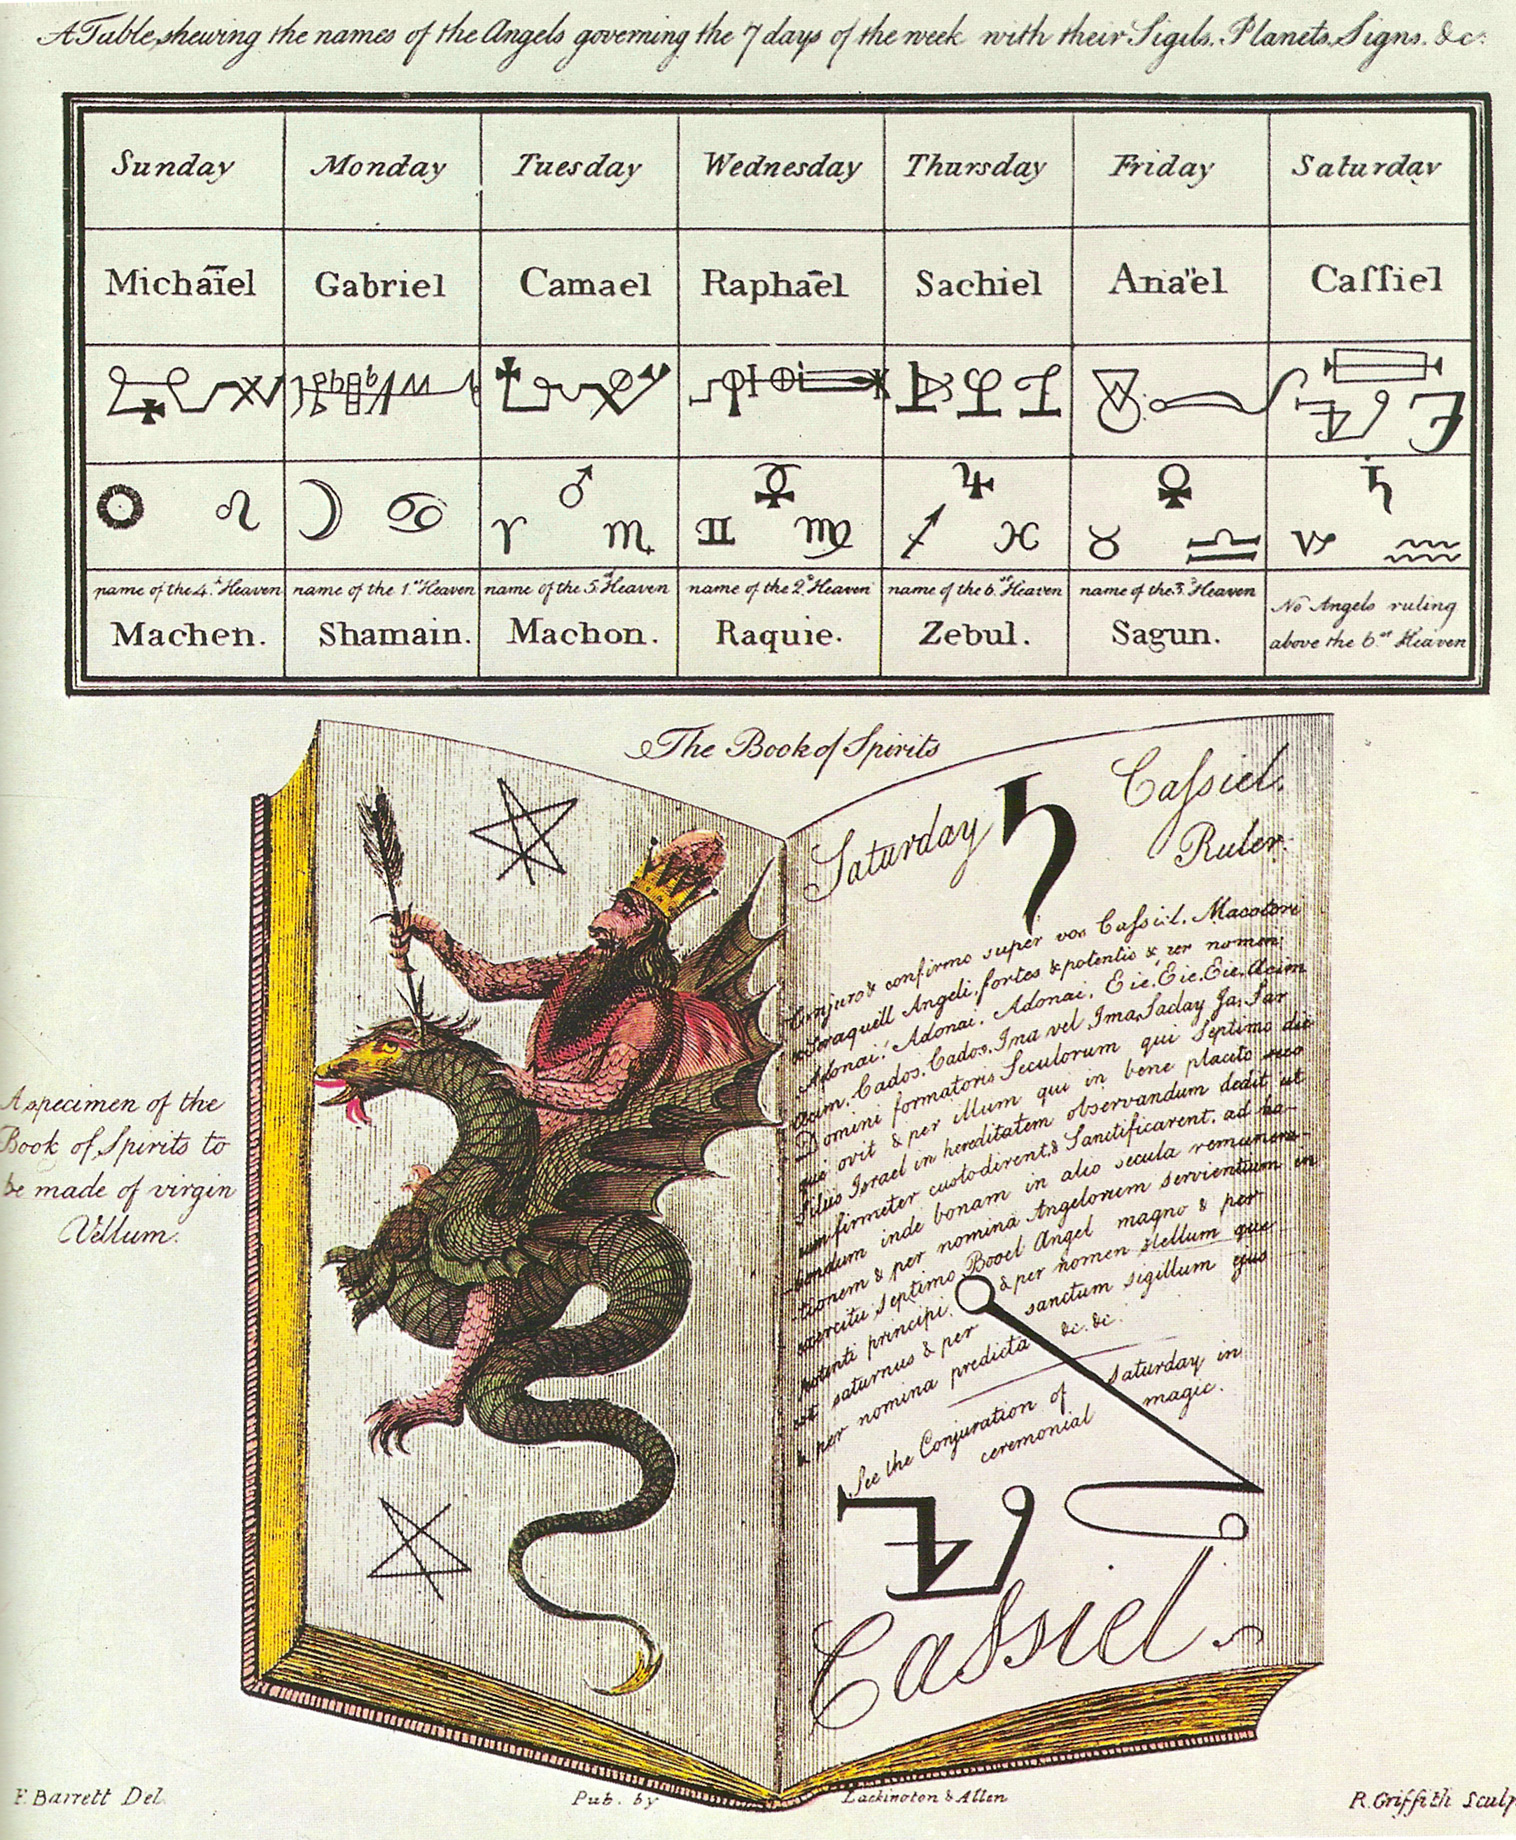 A Table, shewing the names of the Angels governing the 7 days of the week with their Sigils. Planets. Signs. &c:
Sunday Monday Tuesday Wednesday Thursday Friday Saturday
Michāīel Gabriel Camael Raphāel Sachiel Ana"el Caſſiel
☉ ♌ ☽ ♋ ♂ ♈ ♏ ☿ ♊ ♍ ♃ ♐ ♓ ♀ ♉ ♎ ♄ ♑ ♒
name of the 4.th Heaven name of the 1.st Heaven name of the 5.th Heaven name of the 2.d Heaven name of the 6.th Heaven name of the 3.d Heaven No Angels ruling
above the 6.th Heaven
Machen. Shamain. Machon. Raquie. Zebul. Sagun.
The Book of Spirits
Saturday ♄ Caſsiel.
Ruler.
Conjuro & confirmo super vos Caſsiel. Macatori
& Seraquiell Angeli. fortes & potentis & per nomen
Adonai. Adonai. Adonai. Eie. Eie. Eie. Acim
Acim. Cados. Cados. Ina vel Ima. Saday Ja. Sar
Domini formatoris Seculorum qui Septimo die
quie ovit & per illum qui in bene placito suo
filiis Israel in hereditatem observandum dedit ut
eum firmiter custodirent & Sanctificarent. ad ha-
bendum inde bonam in alio secula remunera-
tionem & per nomina Angelorum servientium in
exercitu septimo Booel Angel magno &
potenti principi. & per nomen stellum que
est saturnus & per sanctum sigillum ejus
& per nomina predicta &c. &c.
See the Conjuration of Saturday in
ceremonial magic.
Cassiel.
A specimen of the
Book of Spirits to
be made of virgin
Vellum.
F. Barrett Del. Pub. by Lackington & Allen R. Griffith Sculp